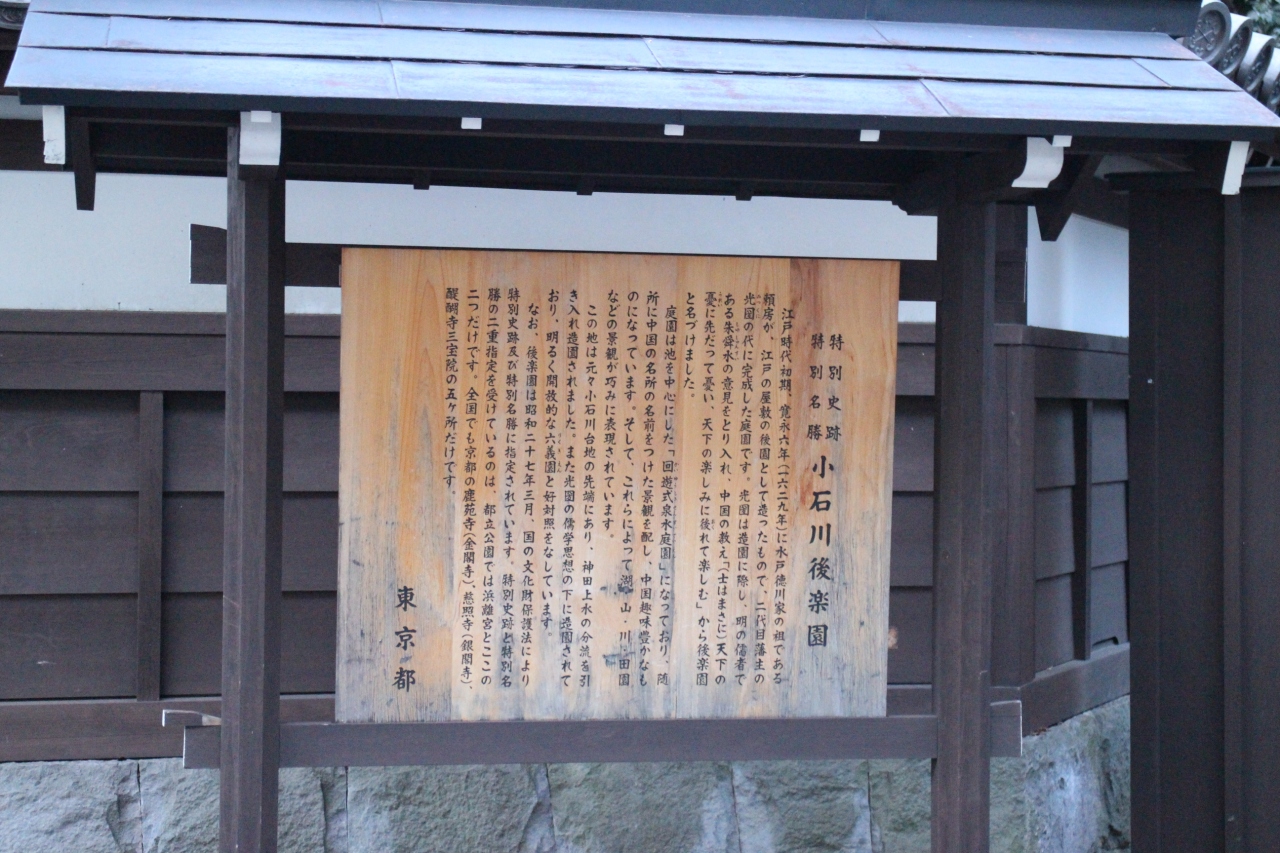 特別史跡
特別名勝
小石川後楽園
江戸時代初期、寛永六年(一六二九年)に水戸徳川家の祖である
頼房が、江戸の屋敷の後園として造ったもので、二代目藩主の
光圀の代に完成した庭園です。光圀は造園に際し、明の儒者で
ある朱舜水の意見をとり入れ、中国の教え「士はまさに)天下の
憂に先だって憂い、天下の楽しみに後れて楽しむ」から後楽園
と名づけました。
庭園は池を中心にした「回遊式泉水庭園」になっており、随
所に中国の名所の名前をつけた景観を配し、中国趣味豊かなも
のになっています。そして、これらによって湖・山・川・田園
などの景観が巧みに表現されています。
この地は元々小石川台地の先端にあり、神田上水の分流を引
き入れ造園されました。また光圀の儒学思想の下に造園されて
おり、明るく開放的な六義園と好対照をなしています。
なお、後楽園は昭和二十七年三月、国の文化財保護法により
特別史跡及び特別名勝に指定されています。特別史跡と特別名
勝の二重指定を受けているのは、都立公園では浜離宮とここの
二つだけです。全国でも京都の鹿苑寺(金閣寺)、慈照寺(銀閣寺)、
醍醐寺三宝院の五ヶ所だけです。
東京都